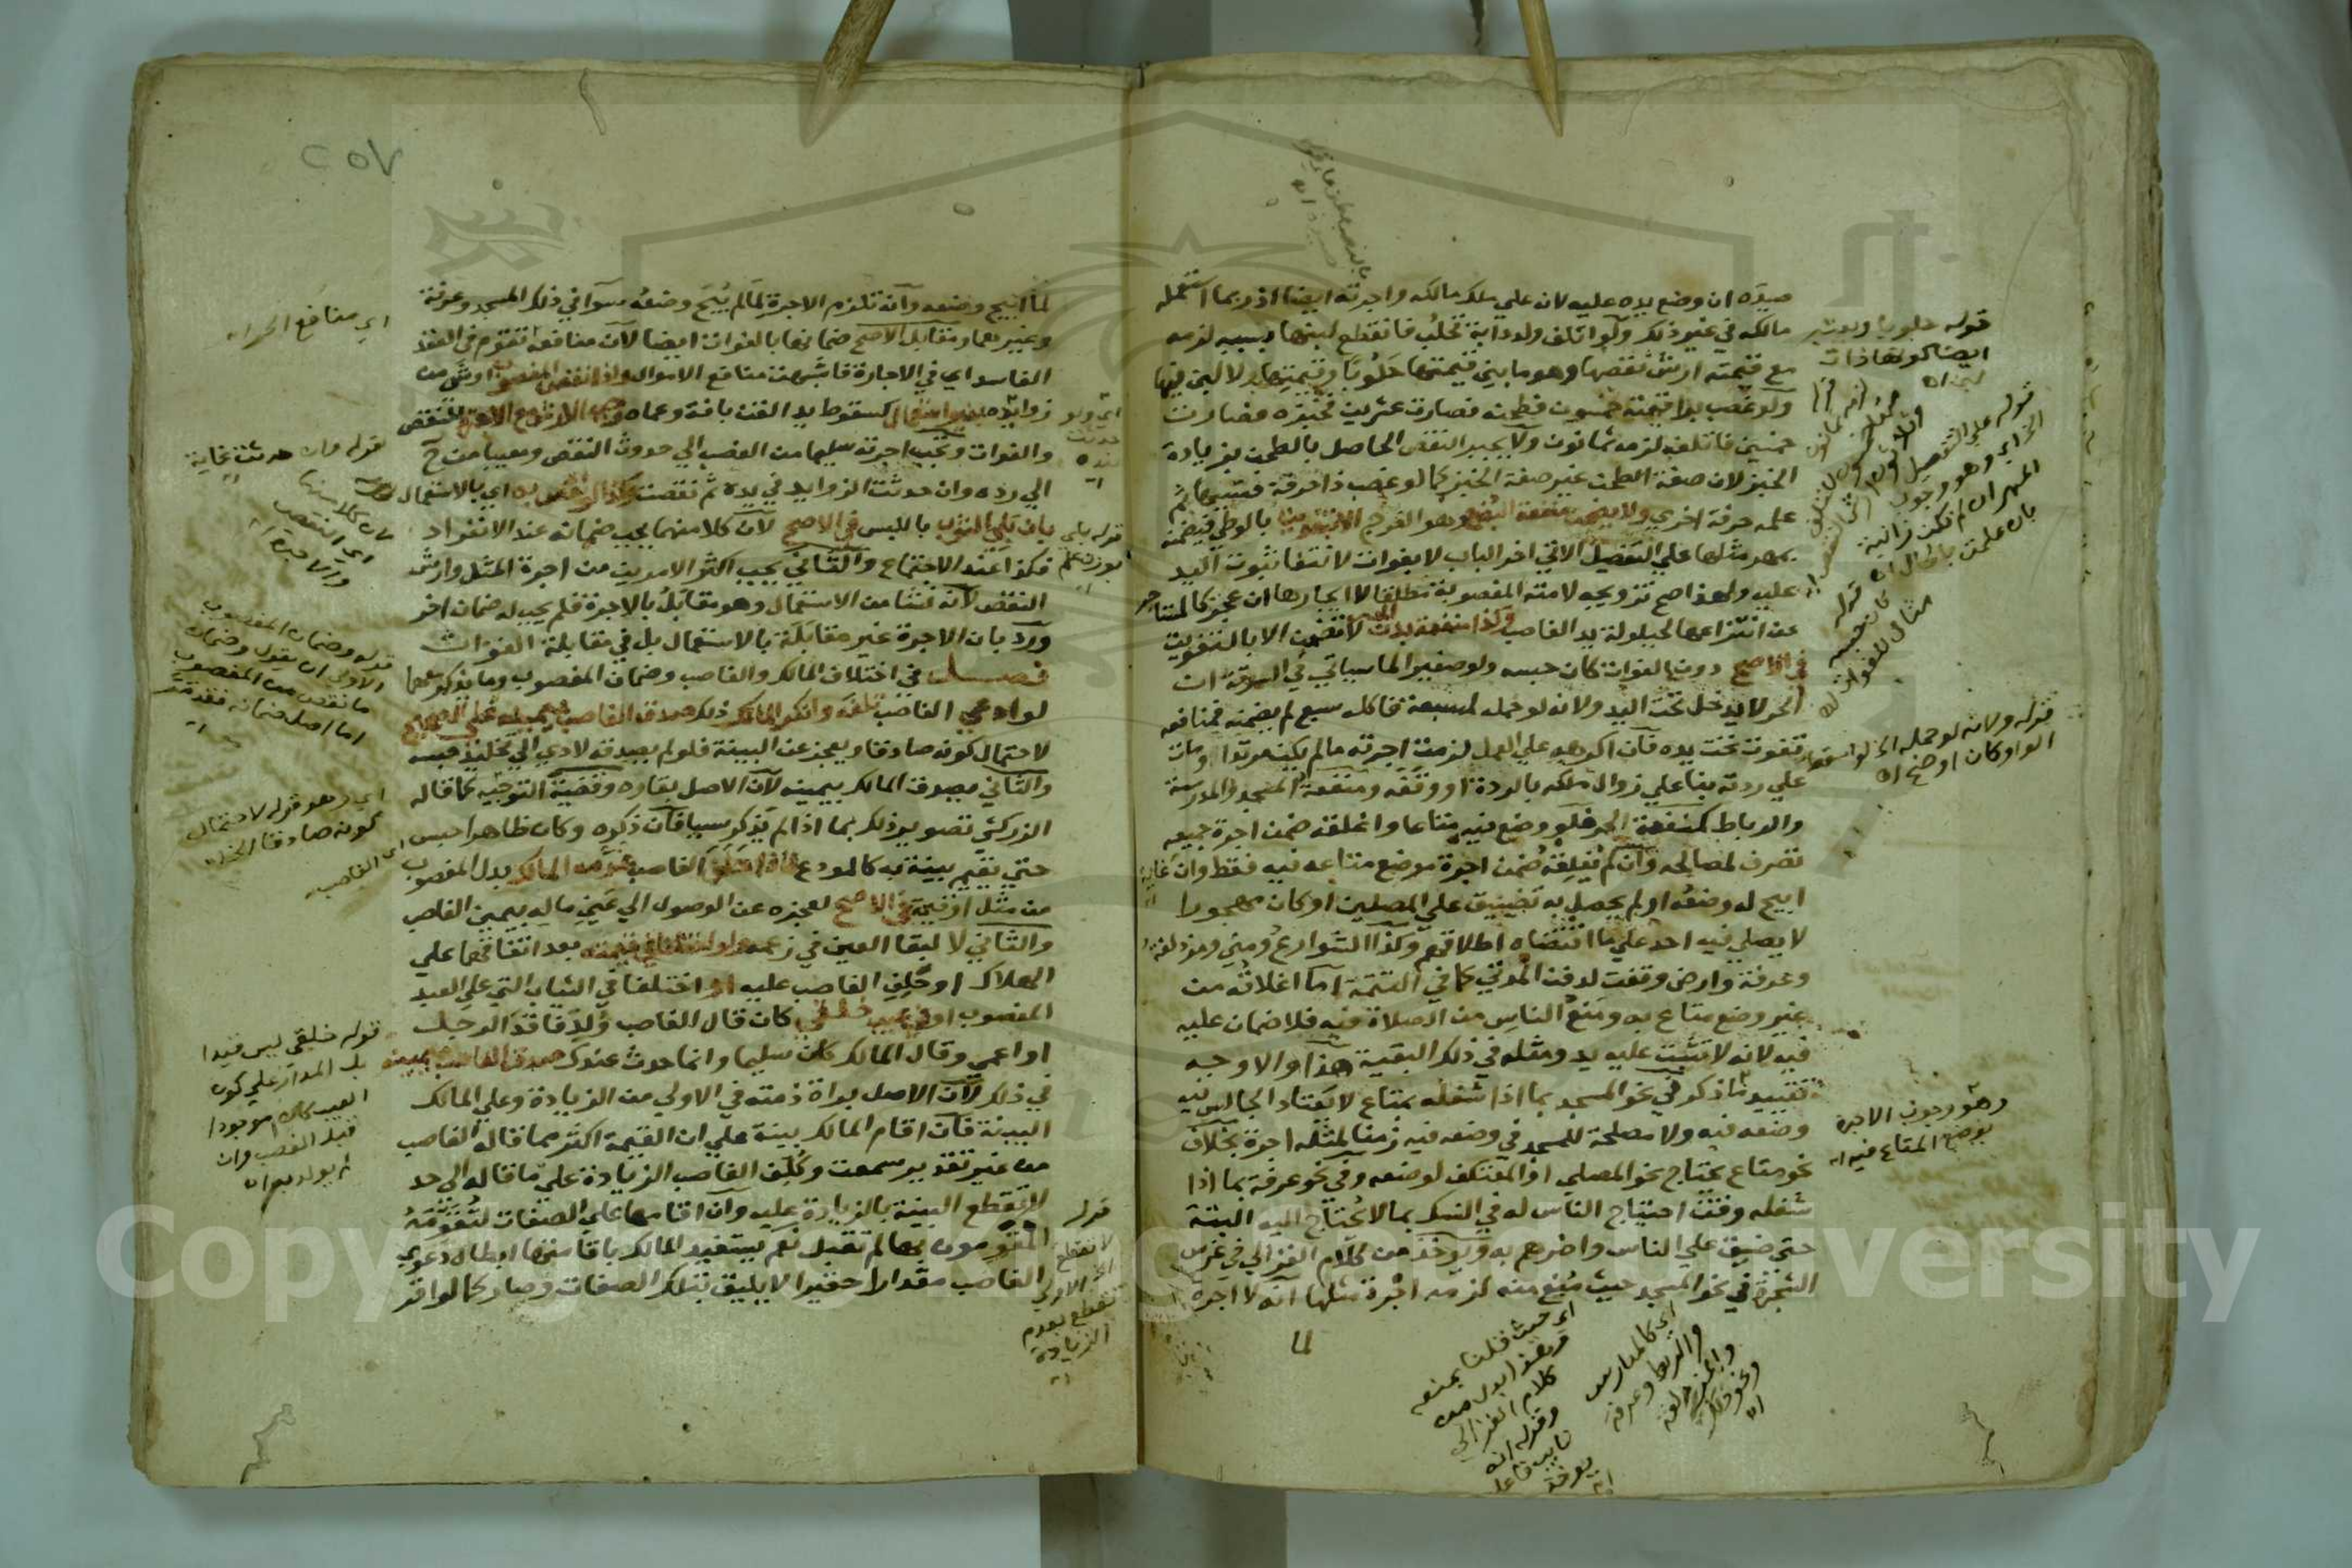 صيده ان وضع يده عليه لانه علي ملك مالكه واجرته ايضا اذ ربما استعمله
مالكه في غير ذلك ولو اتلف ولد دابة تحلب فانقطع لبنها بسببه لزمه
مع قيمته ارش نقصها وهو ما بين قيمتها حلوبا وقيمتها ولا لبن فيها
ولو غصب برا قيمته خمسون فطحنه فصارت عشرين فخبزه فصارت
خمسين فاتلفه لزمه ثمانون ولا يجبر النقص الحاصل بالطحن بزيادة
الخبز لان صفة الطحن غير صفة الخبز كما لو غصب ذا حرفة فنسيها ثم
علمه حرفة اخري ولا يضمن منفعة البضع وهو الفرج الا بتفويت بالوطي فيضمنه
بمهر مثلها علي التفصيل الاتي اخر الباب لا بفوات لانتفا ثبوت اليد
عليه ولهذا صح تزويجه لامته المغصوبة مطلقا لا ايجارها ان عجز كالمستاجر
عن انتزاعها لحيلولة يد الغاصب وكذا منفعة بدن الحر لا تضمن الا بالتفويت
في الاصح دون الفوات كان حبسه ولو صغيرا لما سياتي في السرقة ان
الحر لا يدخل تحت اليد ولانه لو حمله لمسبعة فاكله سبع لم يضمنه فمنافعه
تفوت تحت يده فان اكرهه علي العمل لزمت اجرته ما لم يكن مرتدا ومات
علي ردته بنا علي زوال ملكه بالردة او وقفه ومنفعة المسجد والمدرسة
والرباط كمنفعة الحر فلو وضع فيه متاعا واغلقه ضمن اجرة جميعه
تصرف لمصالحه وان لم يغلقه ضمن اجرة موضع متاعه فيه فقط وان
ابيح له وضعه او لم يحصل به تضييق علي المصلين او كان مهجورا
لا يصلي فيه احد علي ما اقتضاه اطلاقهم وكذا الشوارع ومني ومزدلفة
وعرفة وارض وقفت لدفن الموتي كما في التتمة اما اغلاقه من
غير وضع متاع به ومنع الناس من الصلاة فيه فلا ضمان عليه
فيه لانه لا تثبت عليه يد ومثله في ذلك البقية هذا والاوجه
تقييد ما ذكر في نحو المسجد بما اذا شغله بمتاع لا يعتاد الجالس فيه
وضعه فيه ولا مصلحة للمسجد في وضعه فيه زمنا لمثله اجرة بخلاف
نحو متاع يحتاج نحو المصلي او المعتكف لوضعه وفي نحو عرفة بما اذا
شغله وقت احتياج الناس له في النسك بما لا يحتاج اليه البتة
حتي ضيق علي الناس واضرهم به ويوخذ من كلام الغزالي في غرس
الشجرة في نحو المسجد حيث منع منه لزمه اجرة مثلها انه لا اجرة
لما
قوله حلوبا ويعتبر
ايضا كونها ذات
لبن اه
قوله علي التفصيل
الخ اي وهو وجوب
المهر ان لم تكن زانية
بان علمت بالحال اه
قوله كان حبسه
مثال للفوات اه
قوله ولانه لو حمله الخ لو اسقط
الواو كان اوضح اه
وهو وجوب الاجرة
بوضع المتاع فيه اه
اي حيث قلنا بمنعه
كلام الغزالي
اي كالمدارس
والربط وعرفة
ومزدلفة
ونحو ذلك
اه
٢٥٧
لما ابيح وضعه وانه تلزم الاجرة لما لم يبح وضعه سوا في ذلك المسجد وعرفة
وغيرهما ومقابل الاصح ضمانها بالفوات ايضا لان منافعه تقوم في العقد
الفاسد اي في الاجارة فاشبهت منافع الاموال واذا نقص المغصوب او شي من
زوايده بغير استعمال كسقوط يد القن بافة وعماه وجب الارش مع الاجرة للنقص
والفوات وتجب اجرته سليما من الغصب الي حدوث النقص ومعيبا من ح
الي رده وان حدثت الزوايد في يده ثم نقصت وكذا لو نقص به اي بالاستعمال
بان بلي الثوب باللبس في الاصح لان كلا منهما يجب ضمانه عند الانفراد
فكذا عند الاجتماع والثاني يجب اكثر الامرين من اجرة المثل وارش
النقص لانه نشا من الاستعمال وهو مقابل بالاجرة فلم يجب له ضمان اخر
ورد بان الاجرة غير مقابلة بالاستعمال بل في مقابلة الفوات
فصل في اختلاف المالك والغاصب وضمان المغصوب وما يذكر معهما
لو ادعي الغاصب تلفه وانكر المالك ذلك صدق الغاصب بيمينه علي الصحيح
لاحتمال كونه صادقا ويعجز عن البينة فلو لم يصدقه لادي الي تخليد حبسه
والثاني يصدق المالك بيمينه لان الاصل بقاوه وقضية التوجيه كما قاله
الزركشي تصوير ذلك بما اذا لم يذكر سببا فان ذكره وكان ظاهرا حبس
حتي يقيم بينة به كالمودع فاذا حلف الغاصب غرمه المالك بدل المغصوب
من مثل او قيمة في الاصح لعجزه عن الوصول الي عين ماله بيمين الغاصب
والثاني لا لبقا العين في زعمه ولو اختلفا في قيمته بعد اتفاقهما علي
الهلاك او حلف الغاصب عليه او اختلفا في الثياب التي علي العبد
المغصوب او في عيب خلقي كان قال الغاصب ولد فاقد الرجل
او اعمي وقال المالك كان سليما وانما حدث عندك صدق الغاصب بيمينه
في ذلك لان الاصل براة ذمته في الاولي من الزيادة وعلي المالك
البينة فان اقام المالك بينة علي ان القيمة اكثر مما قاله الغاصب
من غير تقدير سمعت وكلف الغاصب الزيادة علي ما قاله الي حد
لا تقطع البينة بالزيادة عليه وان اقامها علي الصفات لتقومه
المقومون بها لم تقبل نعم يستفيد المالك باقامتها ابطال دعوي
الغاصب مقدارا حقيرا لا يليق بتلك الصفات وصار كما لو اقر
اي منافع الحر اه
قوله وان حدثت غاية
اي النقص
والاجرة اه
قوله وضمان المغصوب
الاولي ان يقول وضمان
ما نقص من المغصوب
اما اصل ضمانه فقد مر
اه
اي وهو قوله لاحتمال
كونه صادقا الخ اه
اي الغاصب
قوله خلقي ليس قيدا
بل المدار علي كون
العيب كان موجودا
قبل الغصب وان
لم يولد به اه
قوله بلي
بوزن علم
قوله
لا تقطع
الخ الاولي
تقطع بعدم
الزيادة
اه